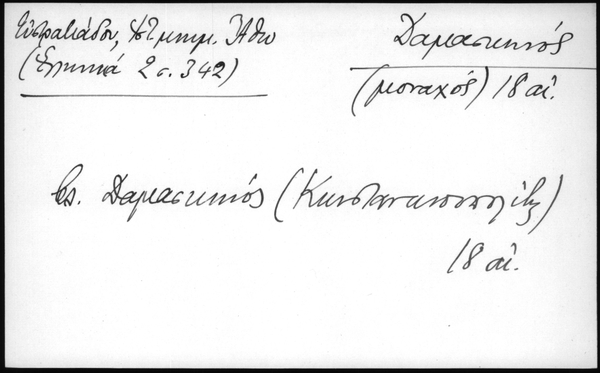 Εὐστρατιάδου, Ἱστ. μνημ. Ἄθω
(Ἑλληνικά 2 σ. 342)
Δαμασκηνός
(μοναχός) 18 αἰ.
βλ. Δαμασκηνός (Κωνσταντινουπολίτης)
18 αἰ.